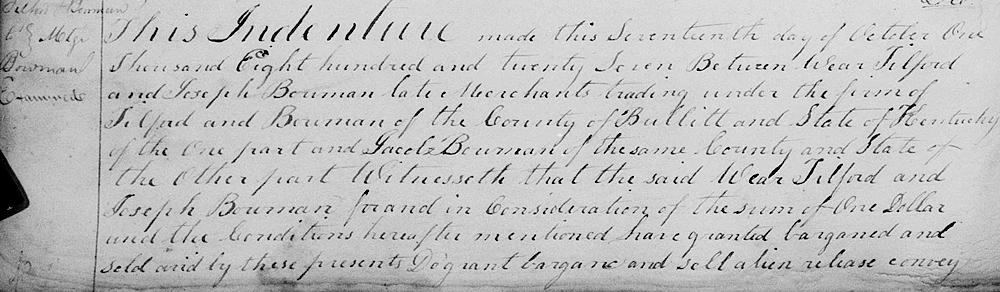 Tilford & Bowman
to } Mtge
Bowman
Examined
This Indenture made this Seventeenth day of October One
Thousand Eight hundred and twenty Seven Between Wear Tilford
and Joseph Bowman late Merchants trading under the firm of
Tilford and Bowman of the County of Bullitt and State of Kentucky
of the One part and Jacob Bowman of the same County and State of
the Other part Witnesseth that the said Wear Tilford and
Joseph Bowman for and in Consideration of the sum of One Dollar
and the Conditions hereafter mentioned have granted barganed and
sold and by these presents Do grant bargane and sell alien release convey